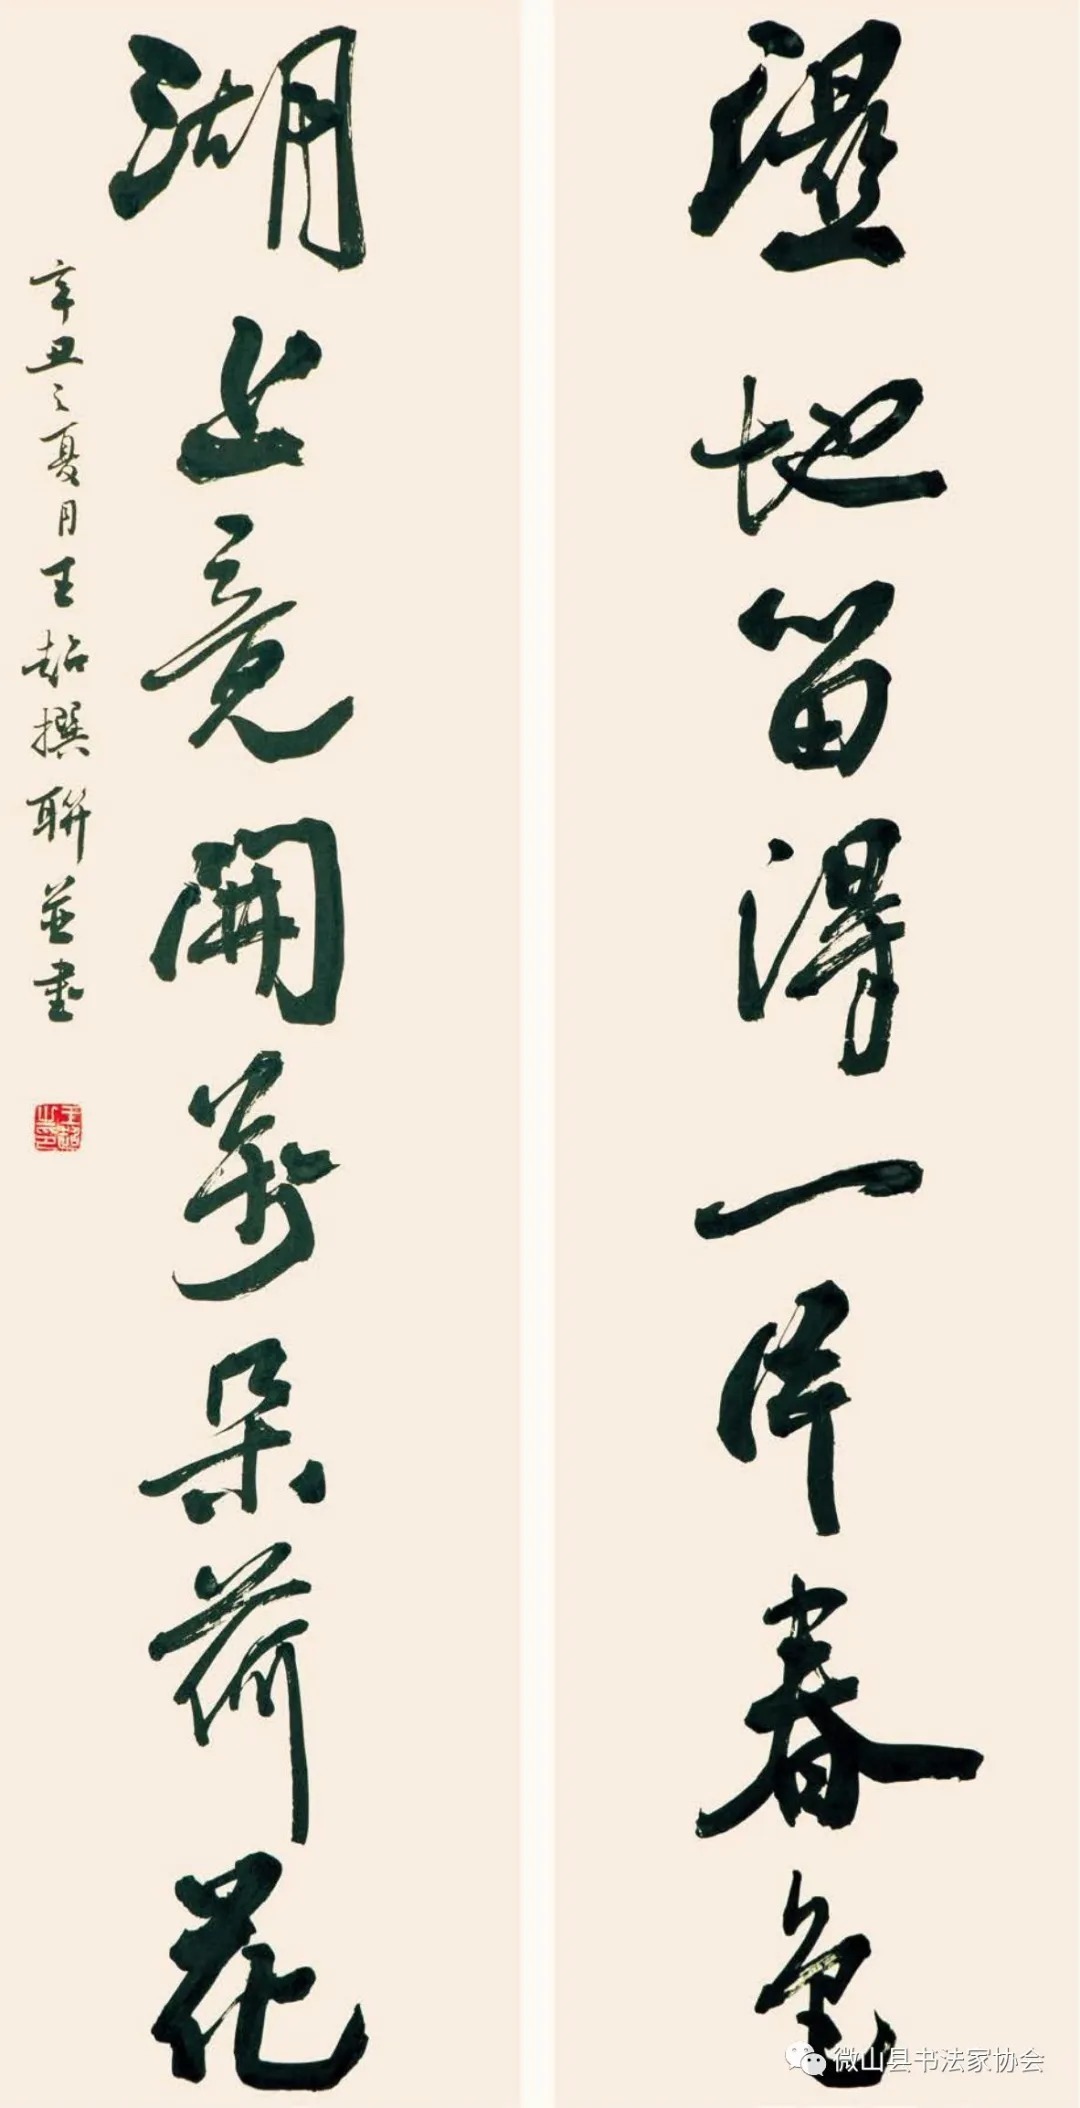 湿地留得一片春色
湖上竟開萬朵荷花
辛丑之夏月王超撰聯並書
王超之印
微山县书法家协会